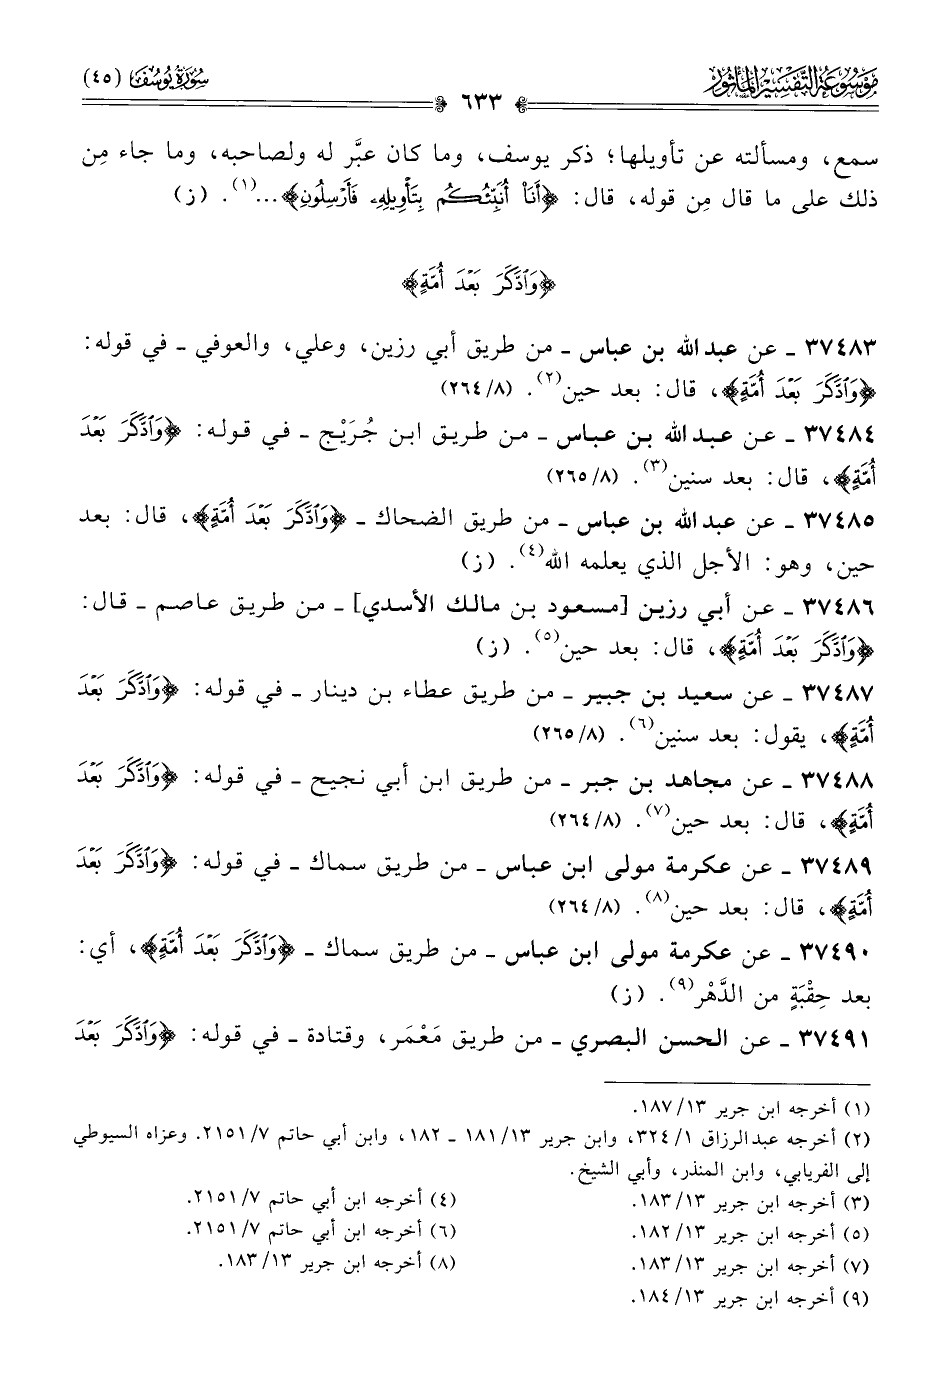 مَوْسُوعَةُ التَّفْسِيرِ المَأْثُور
سُورَةُ يُوسُفَ (٤٥)
٦٣٣
سمع، ومسألته عن تأويلها؛ ذكر يوسف، وما كان عبَّر له ولصاحبه، وما جاء مِن
ذلك على ما قال مِن قوله، قال: ﴿أَنَا۠ أُنَبِّئُكُم بِتَأْوِيلِهِۦ فَأَرْسِلُونِ﴾...(١). (ز)
﴿وَٱدَّكَرَ بَعْدَ أُمَّةٍ﴾
٣٧٤٨٣ ـ عن عبد الله بن عباس ـ من طريق أبي رزين، وعلي، والعوفي ـ في قوله:
﴿وَٱدَّكَرَ بَعْدَ أُمَّةٍ﴾، قال: بعد حين(٢). (٨/٢٦٤)
٣٧٤٨٤ ـ عن عبد الله بن عباس ـ من طريق ابن جُرَيْج ـ في قوله: ﴿وَٱدَّكَرَ بَعْدَ
أُمَّةٍ﴾، قال: بعد سنين(٣). (٨/٢٦٥)
٣٧٤٨٥ ـ عن عبد الله بن عباس ـ من طريق الضحاك ـ ﴿وَٱدَّكَرَ بَعْدَ أُمَّةٍ﴾، قال: بعد
حين، وهو: الأجل الذي يعلمه الله(٤). (ز)
٣٧٤٨٦ ـ عن أبي رزين [مسعود بن مالك الأسدي] ـ من طريق عاصم ـ قال:
﴿وَٱدَّكَرَ بَعْدَ أُمَّةٍ﴾، قال: بعد حين(٥). (ز)
٣٧٤٨٧ ـ عن سعيد بن جبير ـ من طريق عطاء بن دينار ـ في قوله: ﴿وَٱدَّكَرَ بَعْدَ
أُمَّةٍ﴾، يقول: بعد سنين(٦). (٨/٢٦٥)
٣٧٤٨٨ ـ عن مجاهد بن جبر ـ من طريق ابن أبي نجيح ـ في قوله: ﴿وَٱدَّكَرَ بَعْدَ
أُمَّةٍ﴾، قال: بعد حين(٧). (٨/٢٦٤)
٣٧٤٨٩ ـ عن عكرمة مولى ابن عباس ـ من طريق سماك ـ في قوله: ﴿وَٱدَّكَرَ بَعْدَ
أُمَّةٍ﴾، قال: بعد حين(٨). (٨/٢٦٤)
٣٧٤٩٠ ـ عن عكرمة مولى ابن عباس ـ من طريق سماك ـ ﴿وَٱدَّكَرَ بَعْدَ أُمَّةٍ﴾، أي:
بعد حِقْبَةٍ من الدَّهْر(٩). (ز)
٣٧٤٩١ ـ عن الحسن البصري ـ من طريق مَعْمَر، وقتادة ـ في قوله: ﴿وَٱدَّكَرَ بَعْدَ
(١) أخرجه ابن جرير ١٣/١٨٧.
(٢) أخرجه عبد الرزاق ١/٣٢٤، وابن جرير ١٣/١٨١ ـ ١٨٢، وابن أبي حاتم ٧/٢١٥١. وعزاه السيوطي
إلى الفريابي، وابن المنذر، وأبي الشيخ.
(٣) أخرجه ابن جرير ١٣/١٨٣.
(٤) أخرجه ابن أبي حاتم ٧/٢١٥١.
(٥) أخرجه ابن جرير ١٣/١٨٢.
(٦) أخرجه ابن أبي حاتم ٧/٢١٥١.
(٧) أخرجه ابن جرير ١٣/١٨٣.
(٨) أخرجه ابن جرير ١٣/١٨٣.
(٩) أخرجه ابن جرير ١٣/١٨٤.